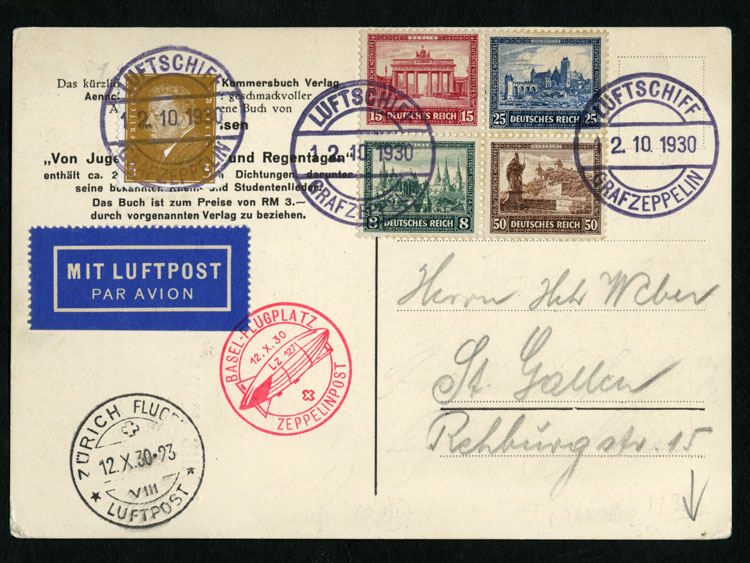 Das kürzlich Kommersbuch Verlag
Aenne geschmackvoller
A Buch von
sen
„Von Juge und Regentagen“
enthält ca. 2 Dichtungen, darunter
seine bekannten Rhein- und Studentenlieder
Das Buch ist zum Preise von RM 3.—
durch vorgenannten Verlag zu beziehen.
LUFTSCHIFF
12.10.1930
GRAF ZEPPELIN
BERLIN
15 15
DEUTSCHES REICH
25 25
DEUTSCHES REICH
LUFTSCHIFF
12.10.1930
GRAF ZEPPELIN
8 8
DEUTSCHES REICH
50 50
DEUTSCHES REICH
LUFTSCHIFF
2.10.1930
GRAF ZEPPELIN
MIT LUFTPOST
PAR AVION
BASEL-FLUGPLATZ
12.X.30
LZ 127
ZEPPELINPOST
ZÜRICH FLUG
12.X.30-23
VIII
LUFTPOST
Herrn Weber
St. Gallen
Rehburgstr. 15